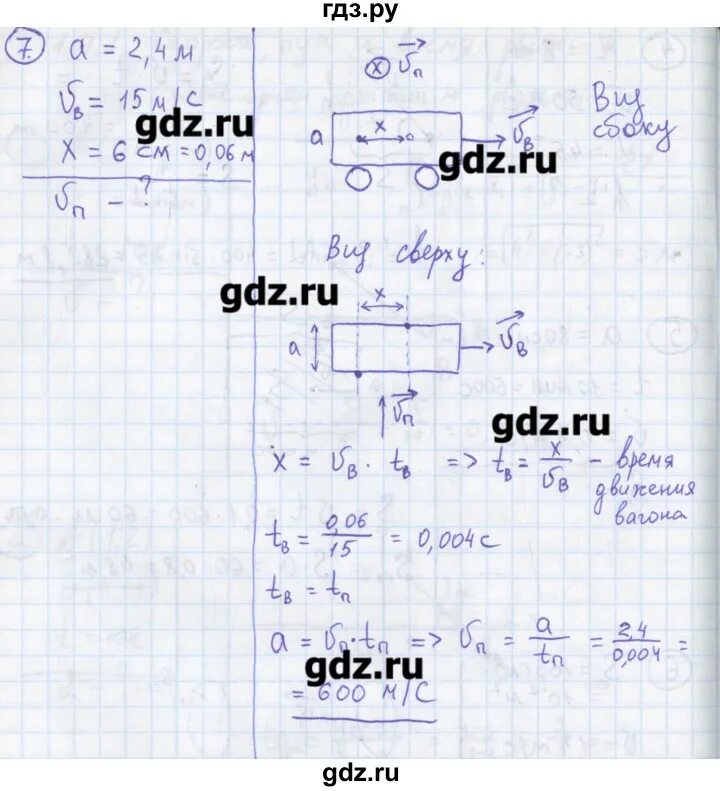 гдз.ру
7. a = 2,4 м
υв = 15 м/с
x = 6 см = 0,06 м
υп - ?
gdz.ru
x υп
a x υв
Вид сбоку
gdz.ru
Вид сверху:
gdz.ru
x
a υв
υп
gdz.ru
x = υв · tв => tв = x/υв - время
движения
вагона
tв = 0,06/15 = 0,004 с
tв = tп
a = υп·tп => υп = a/tп = 2,4/0,004 =
gdz.ru
= 600 м/с
gdz.ru